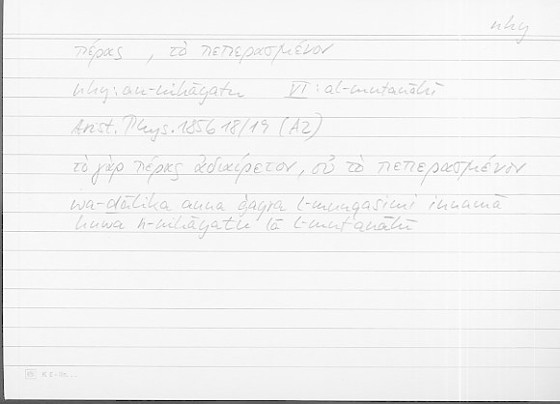 nhy
πέρας , τὸ πεπερασμένον
nhy: an-nihāyatu VI: al-mutanāhī
Arist. Phys. 185b 18/19 (A2)
τὸ γὰρ πέρας ἀδιαίρετον, οὐ τὸ πεπερασμένον
wa-ḏālika anna ġayra l-munqasimi innamā
huwa n-nihāyatu lā l-mutanāhī